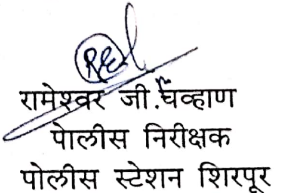 रामेश्वर जी.चव्हाण
पोलीस निरीक्षक
पोलीस स्टेशन शिरपूर